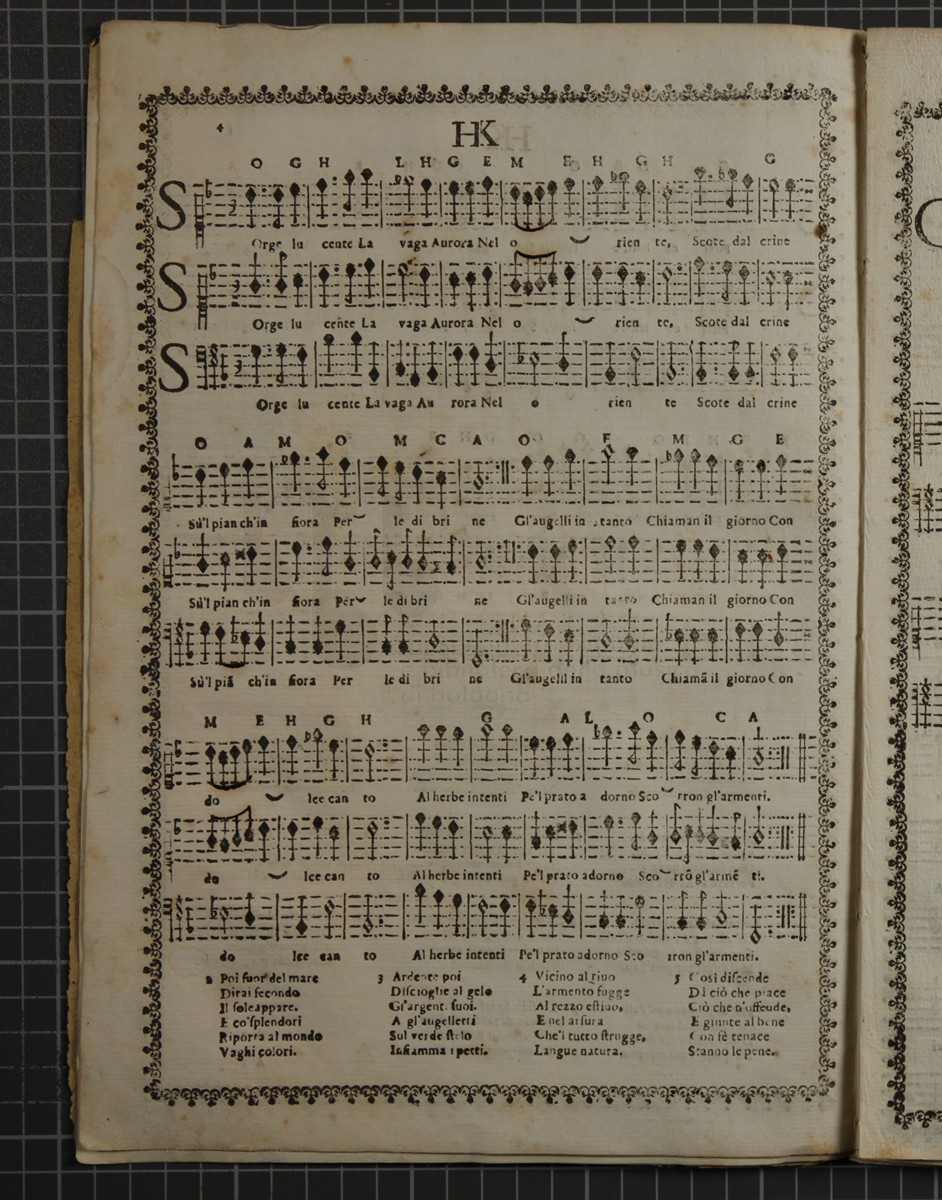 4
HK
O G H L H G E M E H G H G
S Orge lu cente La vaga Aurora Nel o rien te, Scote dal crine
S Orge lu cente La vaga Aurora Nel o rien te, Scote dal crine
S Orge lu cente La vaga Au rora Nel o rien te Scote dal crine
O A M O M C A O E M G E
Sù'l pian ch'in fiora Per le di bri ne Gl'augelli in tanto Chiaman il giorno Con
Sù'l pian ch'in fiora Per le di bri ne Gl'augelli in tanto Chiaman il giorno Con
Sù'l piã ch'in fiora Per le di bri ne Gl'augelil in tanto Chiamã il giorno Con
M E H G H G A L O C A
do lce can to Al herbe intenti Pe'l prato a dorno Sco rron gl'armenti.
do lce can to Al herbe intenti Pe'l prato adorno Sco rrõ gl'armẽ ti.
do lce can to Al herbe intenti Pe'l prato adorno Sco rron gl'armenti.
2 Poi fuor del mare
Dirai secondo
Il sole appare.
E co'splendori
Riporta al mondo
Vaghi colori.
3 Ardente poi
Discioglie al gelo
Gl'argenti suoi.
A gl'augelletti
Sul verde stelo
Infiamma i petti.
4 Vicino al riuo
L'armento fugge
Al rezzo estiuo,
E nel arsura
Che'l tutto strugge,
Langue natura.
5 Così discende
Di ciò che piace
Ciò che n'offeude,
E giunte al bene
Con fè tenace
Stanno le pene.